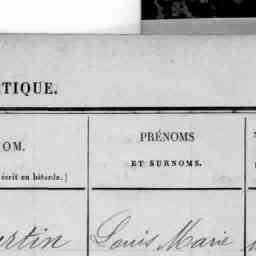 TIQUE.
OM.
PRÉNOMS
ET SURNOMS.
écrit en bâtarde.)
Louis Marie